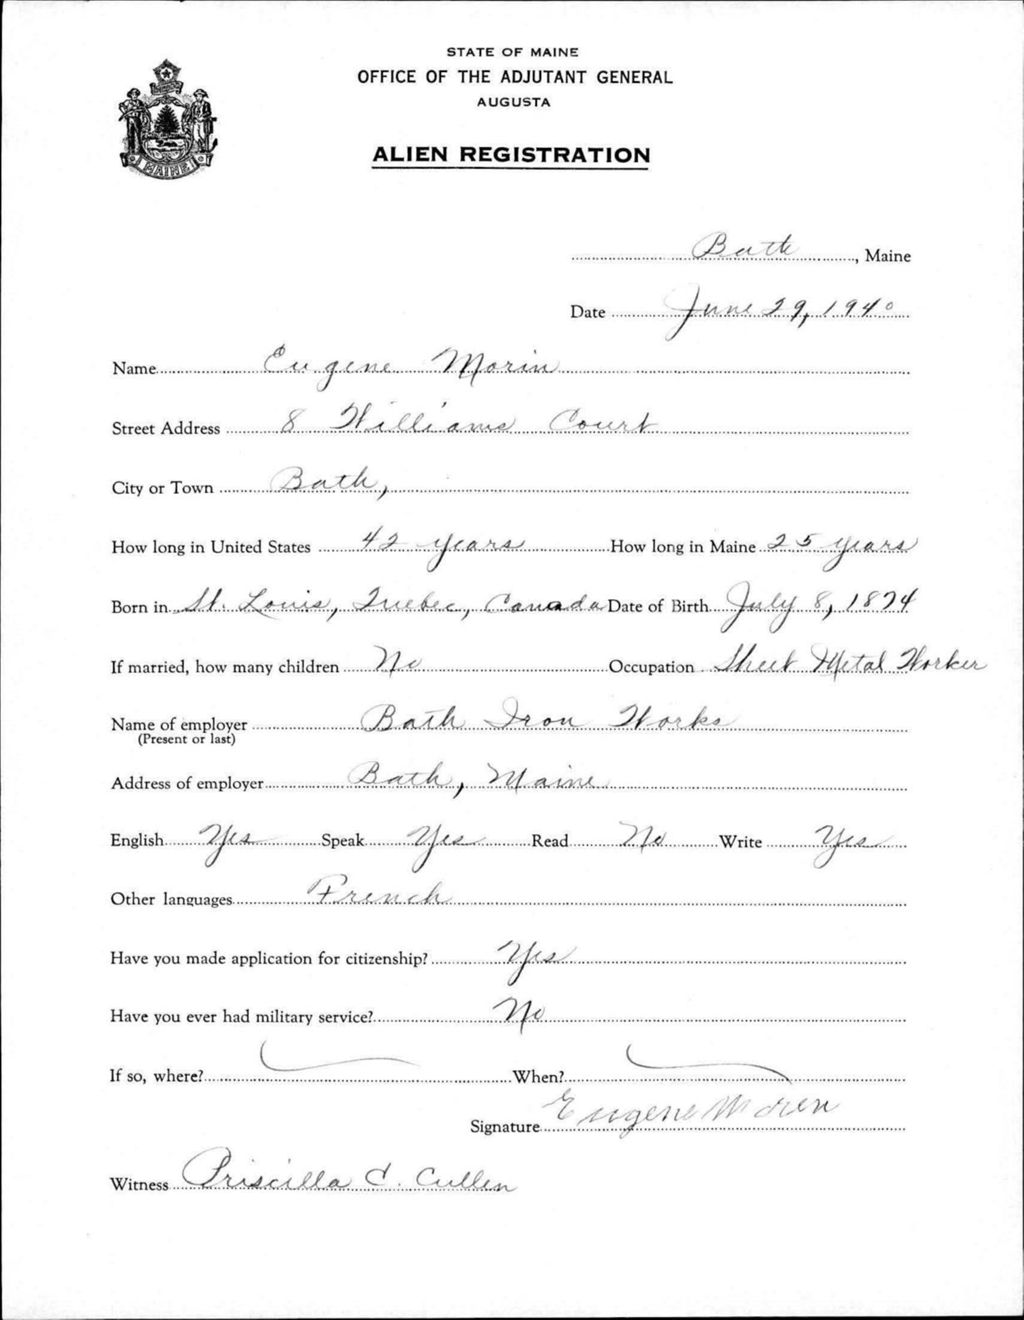 STATE OF MAINE
OFFICE OF THE ADJUTANT GENERAL
AUGUSTA
ALIEN REGISTRATION
MAINE
Bath, Maine
Date June 29, 1940
Name Eugene Morin
Street Address 8 Williams Court
City or Town Bath,
How long in United States 42 years How long in Maine 25 years
Born in St. Louis, Quebec, Canada Date of Birth July 8, 1874
If married, how many children No Occupation Sheet Metal Worker
Name of employer Bath Iron Works
(Present or last)
Address of employer Bath, Maine
English Yes Speak Yes Read No Write Yes
Other languages French
Have you made application for citizenship? Yes
Have you ever had military service? No
If so, where? When?
Signature Eugene Moren
Witness Priscilla C. Cullen